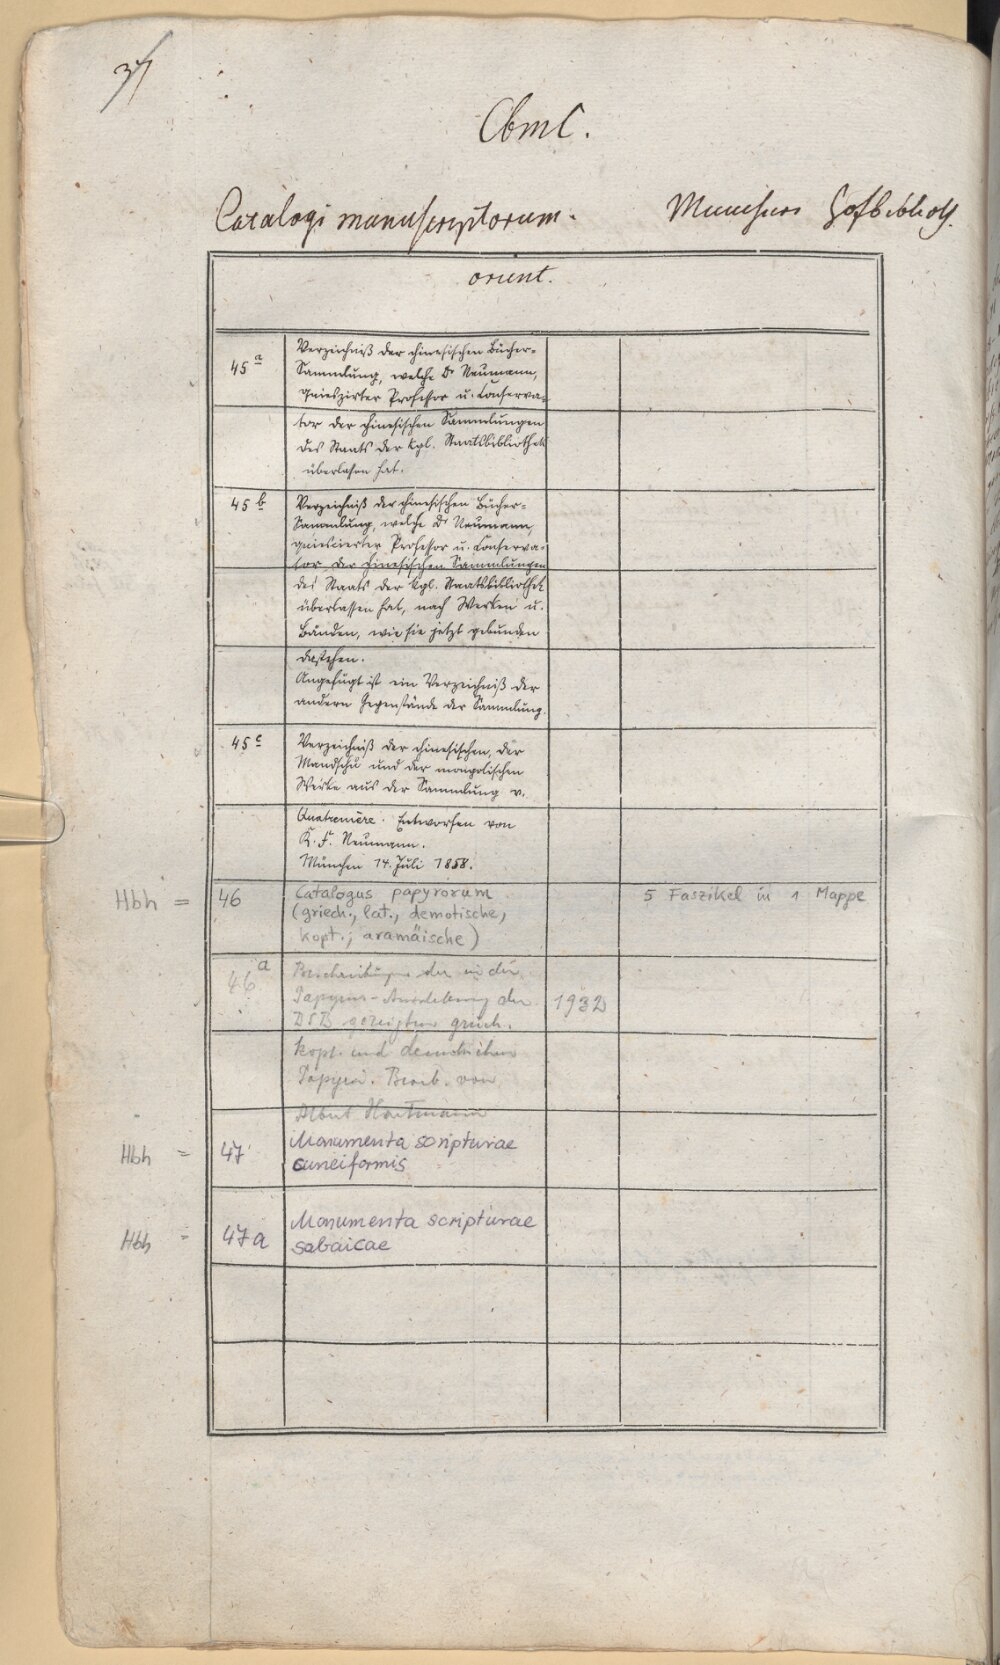 37
CbmC.
Catalogi manuscriptorum. München Hofbiblioth.
orient.
45 a Verzeichniß der chinesischen Bücher-
Sammlung, welche Dr Neumann,
quieszirter Professor u. Conserva-
tor der chinesischen Sammlungen
des Staats der kgl. Staatsbibliothek
überlassen hat.
45 b Verzeichniß der chinesischen Bücher-
Sammlung, welche Dr Neumann,
quiescierter Professor u. Conserva-
tor der chinesischen Sammlungen
des Staats der kgl. Staatsbibliothek
überlassen hat, nach Werken u.
Bänden, wie sie jetzt gebunden
dastehen.
Angefügt ist ein Verzeichniß der
andern Gegenstände der Sammlung.
45 c Verzeichniß der chinesischen, der
Mandschu und der mongolischen
Werke aus der Sammlung v.
Quatremère. Entworfen von
K. F. Neumann.
München 14. Juli 1858.
Hbh = 46 Catalogus papyrorum 5 Faszikel in 1 Mappe
(griech., lat., demotische,
kopt.; aramäische)
46 a Beschreibungen der in der
Papyrus-Ausstellung der 1932
BSB gezeigten griech.
kopt. und demotischen
Papyri. Bearb. von
Albert Hartmann
Hbh = 47 Monumenta scripturae
cuneiformis
Hbh = 47a Monumenta scripturae
sabaicae